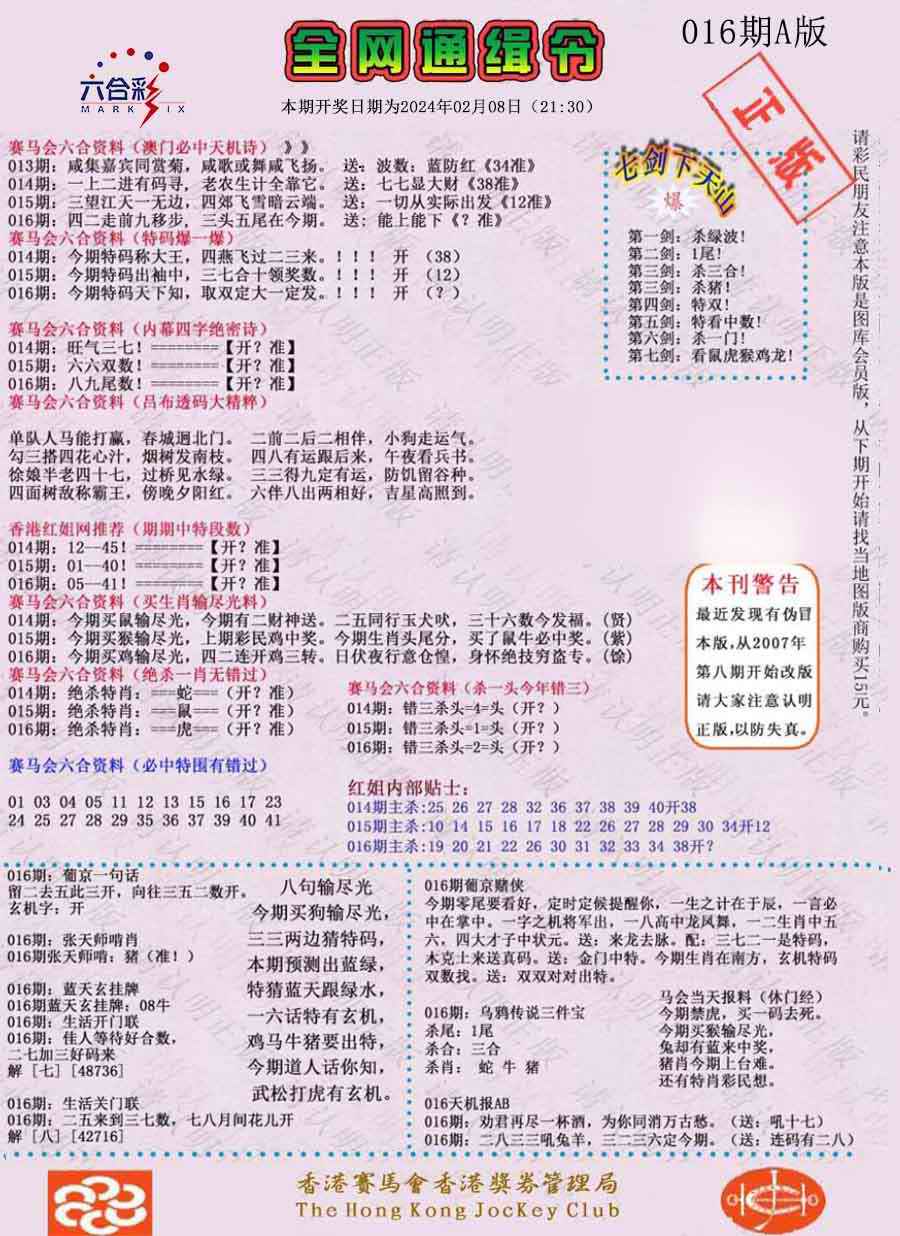 016期A版
全网通缉令
六合彩
MARK SIX
本期开奖日期为2024年02月08日（21:30）
正版
赛马会六合资料（澳门必中天机诗）》》
013期：咸集嘉宾同赏菊，咸歌或舞咸飞扬。 送：波数：蓝防红《34准》
014期：一上二进有码寻， 老农生计全靠它。 送：七七显大财《38准》
015期：三望江天一无边，四郊飞雪暗云端。 送：一切从实际出发《12准》
016期：四二走前九移步，三头五尾在今期。 送: 能上能下《？准》
赛马会六合资料（特码爆一爆）
014期：今期特码称大王，四燕飞过二三来。！！！ 开 （38）
015期：今期特码出袖中，三七合十领奖数。！！！ 开 （12）
016期：今期特码天下知，取双定大一定发。！！！ 开 （？）
七剑下天山
爆
第一剑：杀绿波!
第二剑：1尾!
第三剑：杀三合!
第三剑：杀猪!
第四剑：特双!
第五剑：特看中数!
第六剑：杀一门!
第七剑：看鼠虎猴鸡龙!
请彩民朋友注意本版是图库会员版，从下期开始请找当地图版商购买15元。
赛马会六合资料（内幕四字绝密诗）
014期：旺气三七！========【开？准】
015期：六六双数！========【开？准】
016期：八九尾数！========【开？准】
赛马会六合资料（吕布透码大精粹）
单队人马能打赢，春城迥北门。 二前二后二相伴，小狗走运气。
勾三搭四花心汁，烟树发南枝。 四八有运跟后来，午夜看兵书。
徐娘半老四十七，过桥见水绿。 三三得九定有运，防饥留谷种。
四面树敌称霸王，傍晚夕阳红。 六伴八出两相好，吉星高照到。
香港红姐网推荐（期期中特段数）
014期：12--45！========【开？准】
015期：01--40！========【开？准】
016期：05--41！========【开？准】
赛马会六合资料（买生肖输尽光料）
014期：今期买鼠输尽光，今期有二财神送。二五同行玉犬吠，三十六数今发福。（贤）
015期：今期买猴输尽光，上期彩民鸡中奖。今期生肖头尾分，买了鼠牛必中奖。（紫）
016期：今期买鸡输尽光，四二连开鸡三转。日伏夜行意仓惶，身怀绝技穷盗专。（馀）
本刊警告
最近发现有伪冒
本版,从2007年
第八期开始改版
请大家注意认明
正版,以防失真。
赛马会六合资料（绝杀一肖无错过）
014期：绝杀特肖：===蛇===（开？准）
015期：绝杀特肖：===鼠===（开？准）
016期：绝杀特肖：===虎===（开？准）
赛马会六合资料（杀一头今年错三）
014期：错三杀头=4=头（开？）
015期：错三杀头=1=头（开？）
016期：错三杀头=2=头（开？）
赛马会六合资料（必中特围有错过）
01 03 04 05 11 12 13 15 16 17 23
24 25 27 28 29 35 36 37 39 40 41
红姐内部贴士:
014期主杀:25 26 27 28 32 36 37 38 39 40开38
015期主杀:10 14 15 16 17 18 22 26 27 28 29 30 34开12
016期主杀:19 20 21 22 26 30 31 32 33 34 38开？
016期：葡京一句话
留二去五此三开，向往三五二数开。
玄机字：开
016期：张天师啃肖
016期张天师啃：猪（准！）
016期：蓝天玄挂牌
016期蓝天玄挂牌：08牛
016期：生活开门联
016期：佳人等待好合数，
二七加三好码来
解 [七] [48736]
016期：生活关门联
016期：二五来到三七数，七八月间花儿开
解 [八] [42716]
八句输尽光
今期买狗输尽光，
三三两边猜特码，
本期预测出蓝绿，
特猜蓝天跟绿水，
一六话特有玄机，
鸡马牛猪要出特，
今期道人话你知，
武松打虎有玄机。
016期葡京赌侠
今期零尾要看好，定时定候提醒你，一生之计在于辰，一言必
中在掌中。一字之机将军出，一八高中龙凤舞，一二生肖中五
六，四大才子中状元。送：来龙去脉。配：三七二一是特码，
木克上来送真码。送：金门中特。今期生肖在南方，玄机特码
双数找。送：双双对对出特。
016期：乌鸦传说三件宝
杀尾：1尾
杀合：三合
杀肖： 蛇 牛 猪
马会当天报料（休门经）
今期禁虎，买一码去死。
今期买猴输尽光，
兔却有蓝来中奖，
猪肖今期上台难。
还有特肖彩民想。
016天机报AB
016期：劝君再尽一杯酒，为你同消万古愁。（送：吼十七）
016期：二八三三吼兔羊，三二三六定今期。（送：连码有二八）
香港賽馬會香港獎券管理局
The Hong Kong JocKey Club